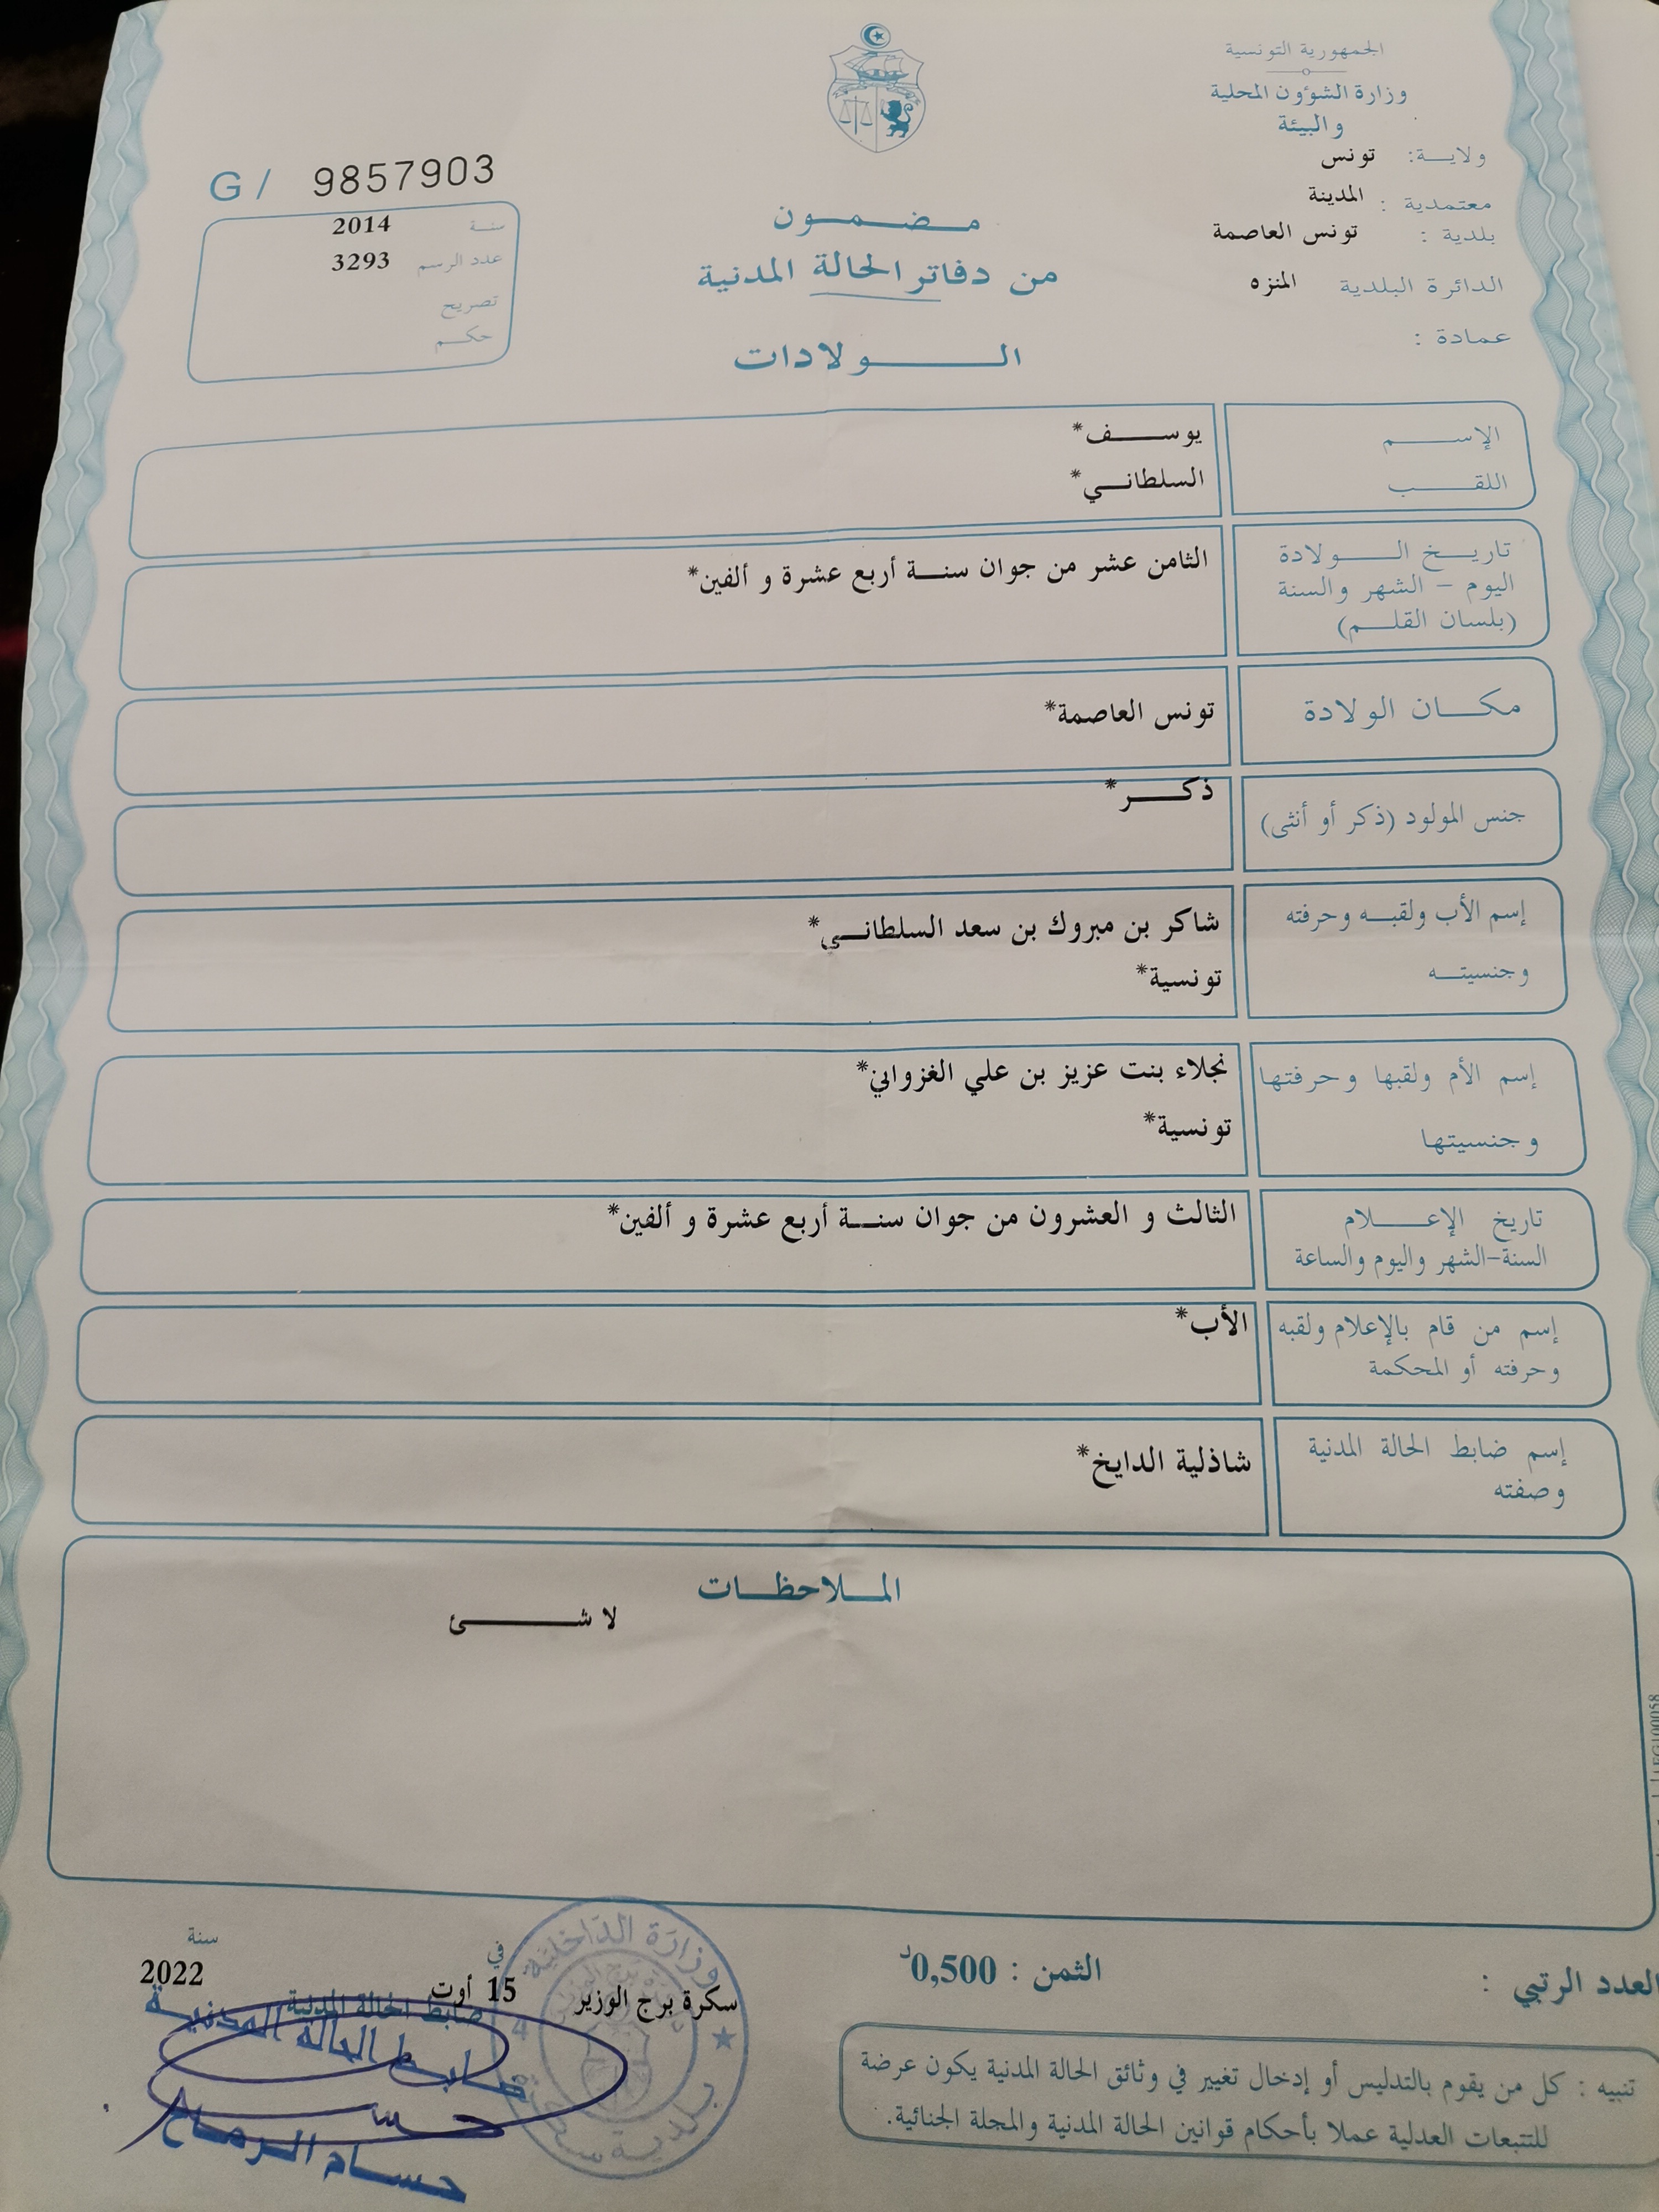 الجمهورية التونسية
وزارة الشؤون المحلية
والبيئة
ولاية: تونس
معتمدية : المدينة
بلدية : تونس العاصمة
الدائرة البلدية المنزه
عمادة :
G / 9857903
سنة 2014
عدد الرسم 3293
تصريح
حكم
مضمون
من دفاتر الحالة المدنية
الولادات
الإسم يوسف*
اللقب السلطاني*
تاريخ الولادة
اليوم – الشهر والسنة
(بلسان القلم)
الثامن عشر من جوان سنة أربع عشرة و ألفين*
مكان الولادة تونس العاصمة*
جنس المولود (ذكر أو أنثى) ذكر*
إسم الأب ولقبه وحرفته
شاكر بن مبروك بن سعد السلطاني*
وجنسيته تونسية*
إسم الأم ولقبها وحرفتها
نجلاء بنت عزيز بن علي الغزواني*
وجنسيتها تونسية*
تاريخ الإعلام
السنة-الشهر واليوم والساعة
الثالث و العشرون من جوان سنة أربع عشرة و ألفين*
إسم من قام بالإعلام ولقبه
وحرفته أو المحكمة
الأب*
إسم ضابط الحالة المدنية
وصفته
شاذلية الدايخ*
الملاحظات
لا شئ
العدد الرتبي :
الثمن : 0,500د
سكرة برج الوزير في 15 أوت سنة 2022
ضابط الحالة المدنية
ضابط الحالة المدنية
حسام الرماح
وزارة الداخلية
بلدية سكرة
4
تنبيه : كل من يقوم بالتدليس أو إدخال تغيير في وثائق الحالة المدنية يكون عرضة
للتتبعات العدلية عملا بأحكام قوانين الحالة المدنية والمجلة الجنائية.